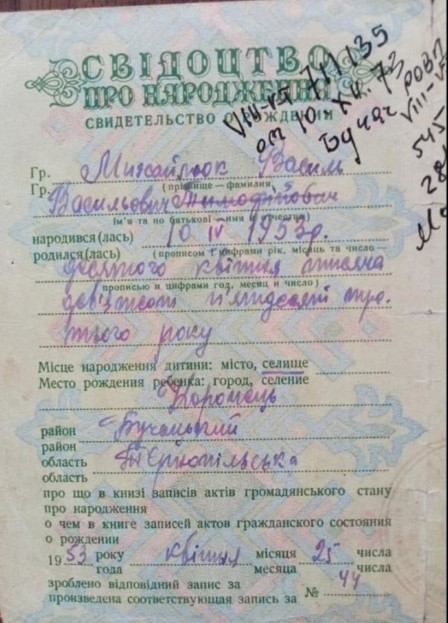 СВІДОЦТВО
ПРО НАРОДЖЕННЯ
СВИДЕТЕЛЬСТВО О РОЖДЕНИИ
VIII-
от 10. XII. 73
Бучач
VIII-
545
28
Гр. Михайлюк Василь
(прізвище — фамилия,
Гр. Васильович Тимофійович
ім'я та по батькові — имя и отчество)
народився (лась) 10 IV 1953 р.
родился (лась) (прописом і цифрами рік, місяць та число —
десятого квітня тисяча
прописью и цифрами год, месяц и число)
дев'ятсот п'ятдесят тре-
тього року
Місце народження дитини: місто, селище
Место рождения ребенка: город, селение
Коропець
район Бучацький
район
область Тернопільська
область
про що в книзі записів актів громадянського стану
про народження
о чем в книге записей актов гражданского состояния
о рождении
19 53 року квітня місяця 25 числа
года месяца числа
зроблено відповідний запис за № 44
произведена соответствующая запись за